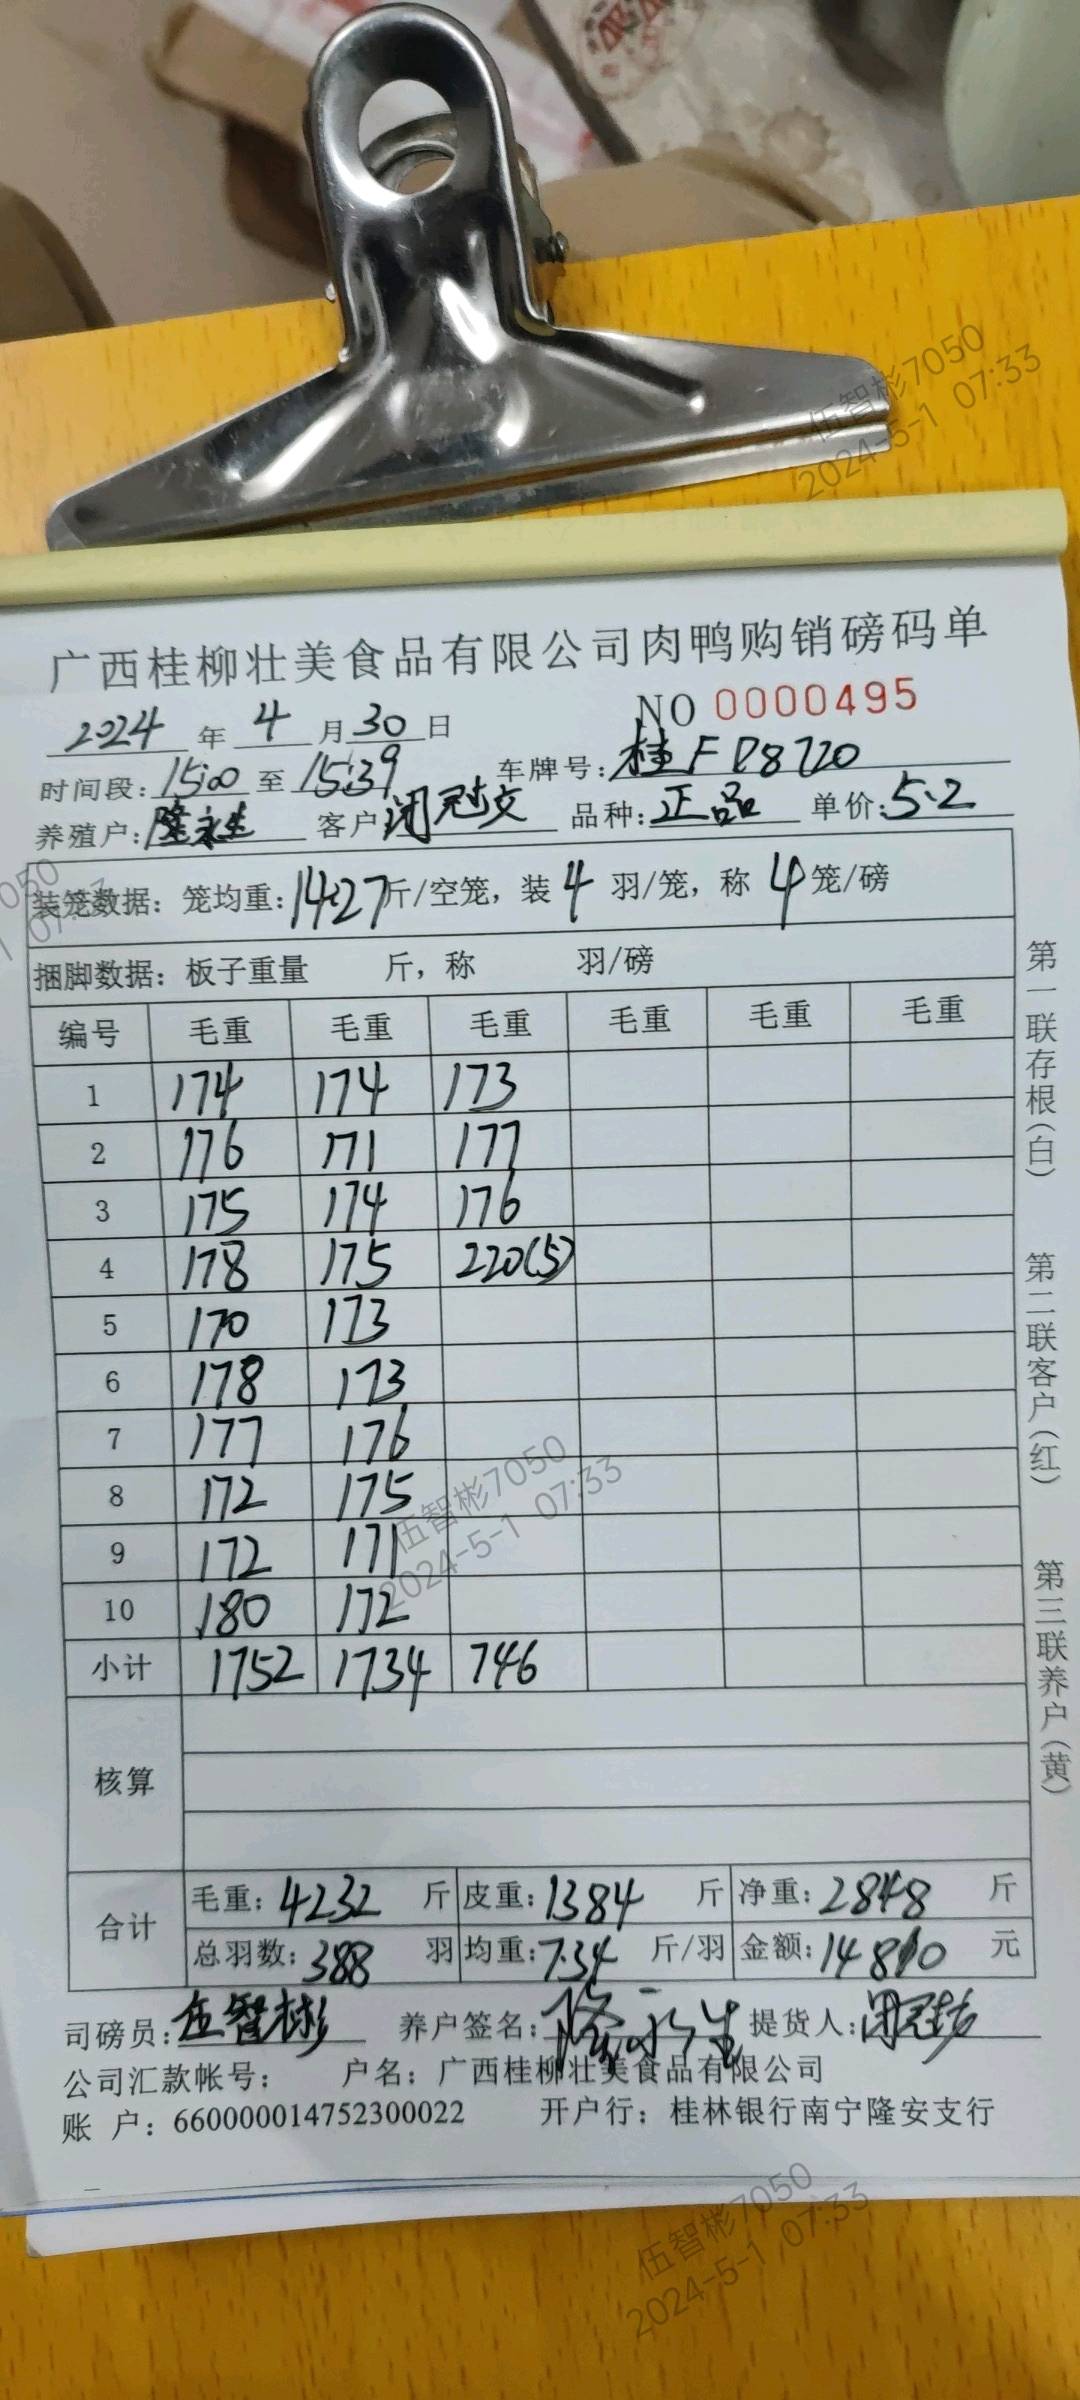 伍智彬7050
2024-5-1 07:33
广西桂柳壮美食品有限公司肉鸭购销磅码单
2024 年 4 月 30 日 NO 0000495
时间段: 15:00 至 15:39 车牌号: 桂FD8720
养殖户: 隆永生 客户 闭冠文 品种: 正品 单价: 5.2
装笼数据: 笼均重: 14.27 斤/空笼, 装 4 羽/笼, 称 4 笼/磅
捆脚数据: 板子重量 斤, 称 羽/磅
编号 毛重 毛重 毛重 毛重 毛重 毛重
1 174 174 173
2 176 171 177
3 175 174 176
4 178 175 220(5)
5 170 173
6 178 173
7 177 176
8 172 175
9 172 171
10 180 172
小计 1752 1734 746
核算
合计 毛重: 4232 斤 皮重: 1384 斤 净重: 2848 斤
总羽数: 388 羽 均重: 7.34 斤/羽 金额: 14810 元
司磅员: 伍智彬 养户签名: 隆永生 提货人:
公司汇款帐号: 户名: 广西桂柳壮美食品有限公司
账 户: 660000014752300022 开户行: 桂林银行南宁隆安支行
第一联存根(白)
第二联客户(红)
第三联养户(黄)
7050
07:33
伍智彬7050
2024-5-1 07:33
伍智彬7050
2024-5-1 07:33